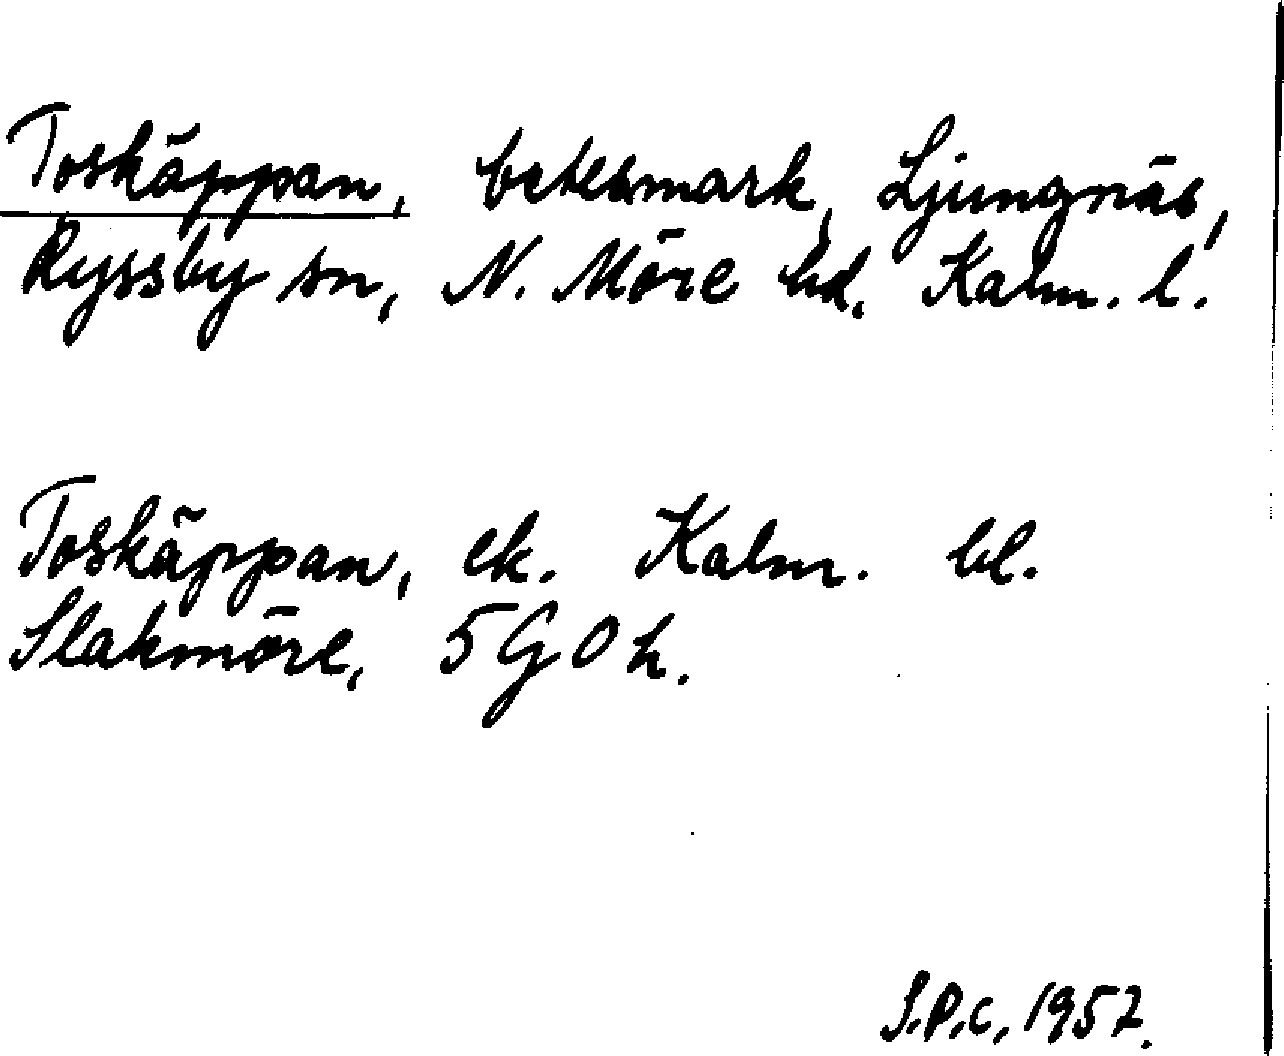 Toskäppan, betesmark, Ljungnäs,
Ryssby sn, N. Möre hd. Kalm. l.
Toskäppan, ek. Kalm. bl.
Slakmöre, 5G0h.
S.P.C. 1957.